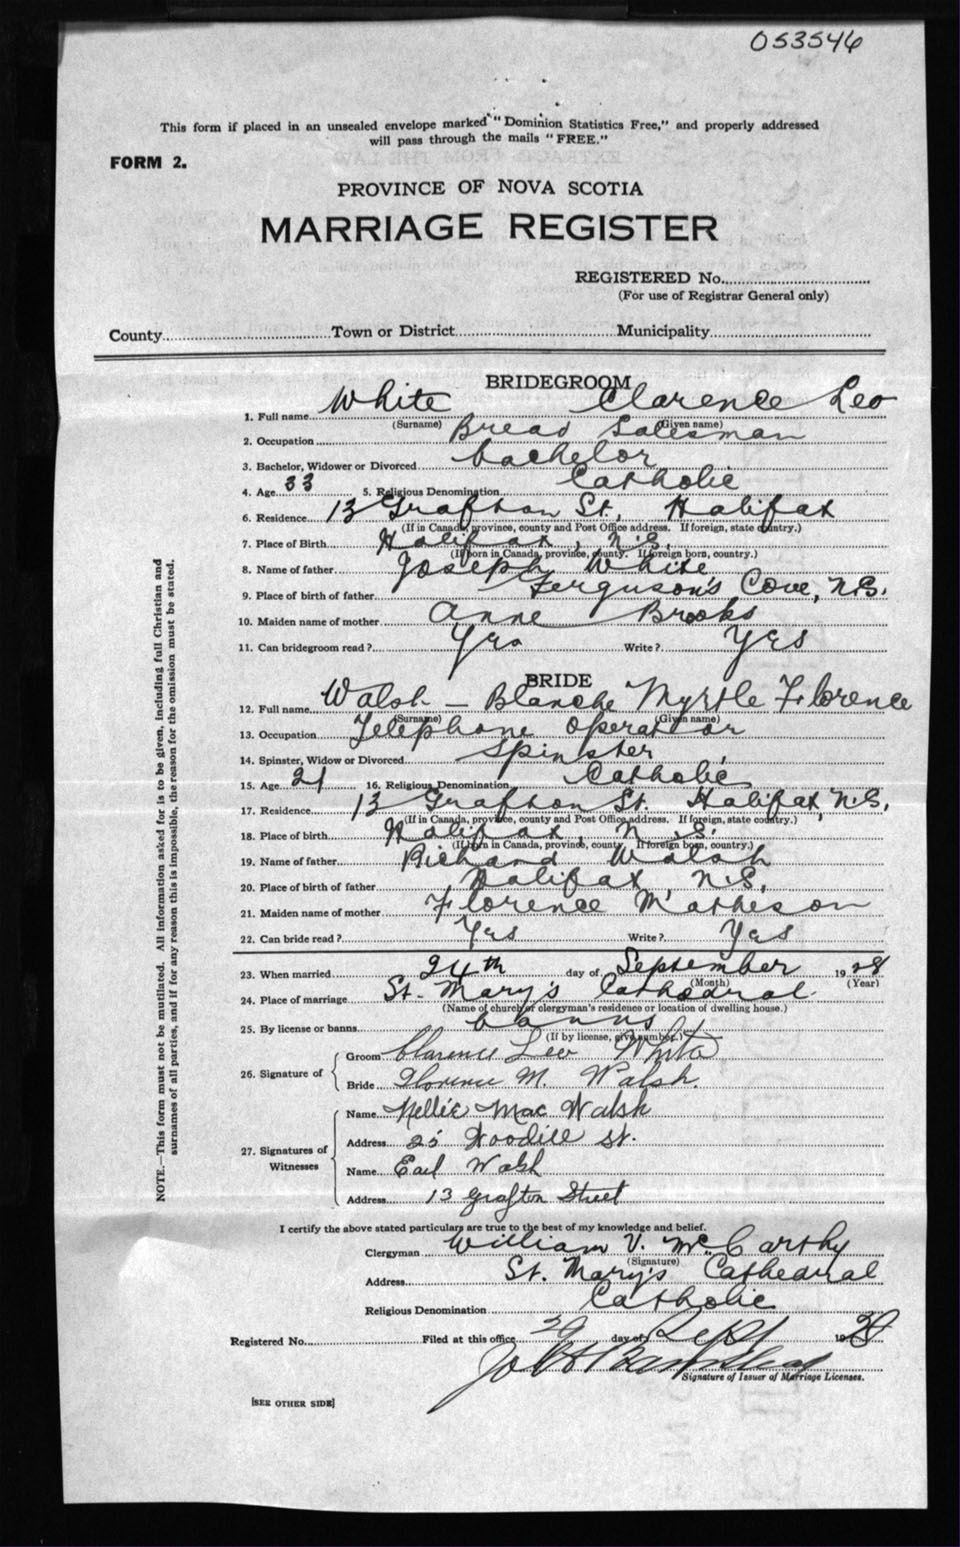 053546
This form if placed in an unsealed envelope marked "Dominion Statistics Free," and properly addressed
will pass through the mails "FREE."
FORM 2.
PROVINCE OF NOVA SCOTIA
MARRIAGE REGISTER
REGISTERED No.
(For use of Registrar General only)
County Town or District Municipality
BRIDEGROOM
1. Full name White Clarence Leo
(Surname) (Given name)
2. Occupation Bread Salesman
3. Bachelor, Widower or Divorced bachelor
4. Age 33 5. Religious Denomination Catholic
6. Residence 13 Grafton St., Halifax
(If in Canada, province, county and Post Office address. If foreign, state country.)
7. Place of Birth Halifax, N.S.
(If born in Canada, province, county. If foreign born, country.)
8. Name of father Joseph White
9. Place of birth of father Ferguson's Cove, N.S.
10. Maiden name of mother Anne Brooks
11. Can bridegroom read? Yes Write? Yes
BRIDE
12. Full name Walsh - Blanche Myrtle Florence
(Surname) (Given name)
13. Occupation Telephone operator
14. Spinster, Widow or Divorced Spinster
15. Age 21 16. Religious Denomination Catholic
17. Residence 13 Grafton St. Halifax, N.S.
(If in Canada, province, county and Post Office address. If foreign, state country.)
18. Place of birth Halifax, N.S.
(If born in Canada, province, county. If foreign born, country.)
19. Name of father Richard Walsh
20. Place of birth of father Halifax, N.S.
21. Maiden name of mother Florence Matheson
22. Can bride read? Yes Write? Yes
23. When married 24th day of September 1928
(Month) (Year)
24. Place of marriage St. Mary's Cathedral
(Name of church or clergyman's residence or location of dwelling house.)
25. By license or banns banns
(If by license, give number.)
26. Signature of
Groom Clarence Leo White
Bride Florence M. Walsh.
27. Signatures of Witnesses
Name Nellie Mac Walsh
Address 25 Woodill St.
Name Earl Walsh
Address 13 Grafton Street
I certify the above stated particulars are true to the best of my knowledge and belief.
Clergyman William V. McCarthy
(Signature)
Address St. Mary's Cathedral
Religious Denomination Catholic
Registered No. Filed at this office day of Sept 1928
Signature of Issuer of Marriage Licenses.
[SEE OTHER SIDE]
NOTE.—This form must not be mutilated. All information asked for is to be given, including full Christian and
surnames of all parties, and if for any reason this is impossible, the reason for the omission must be stated.